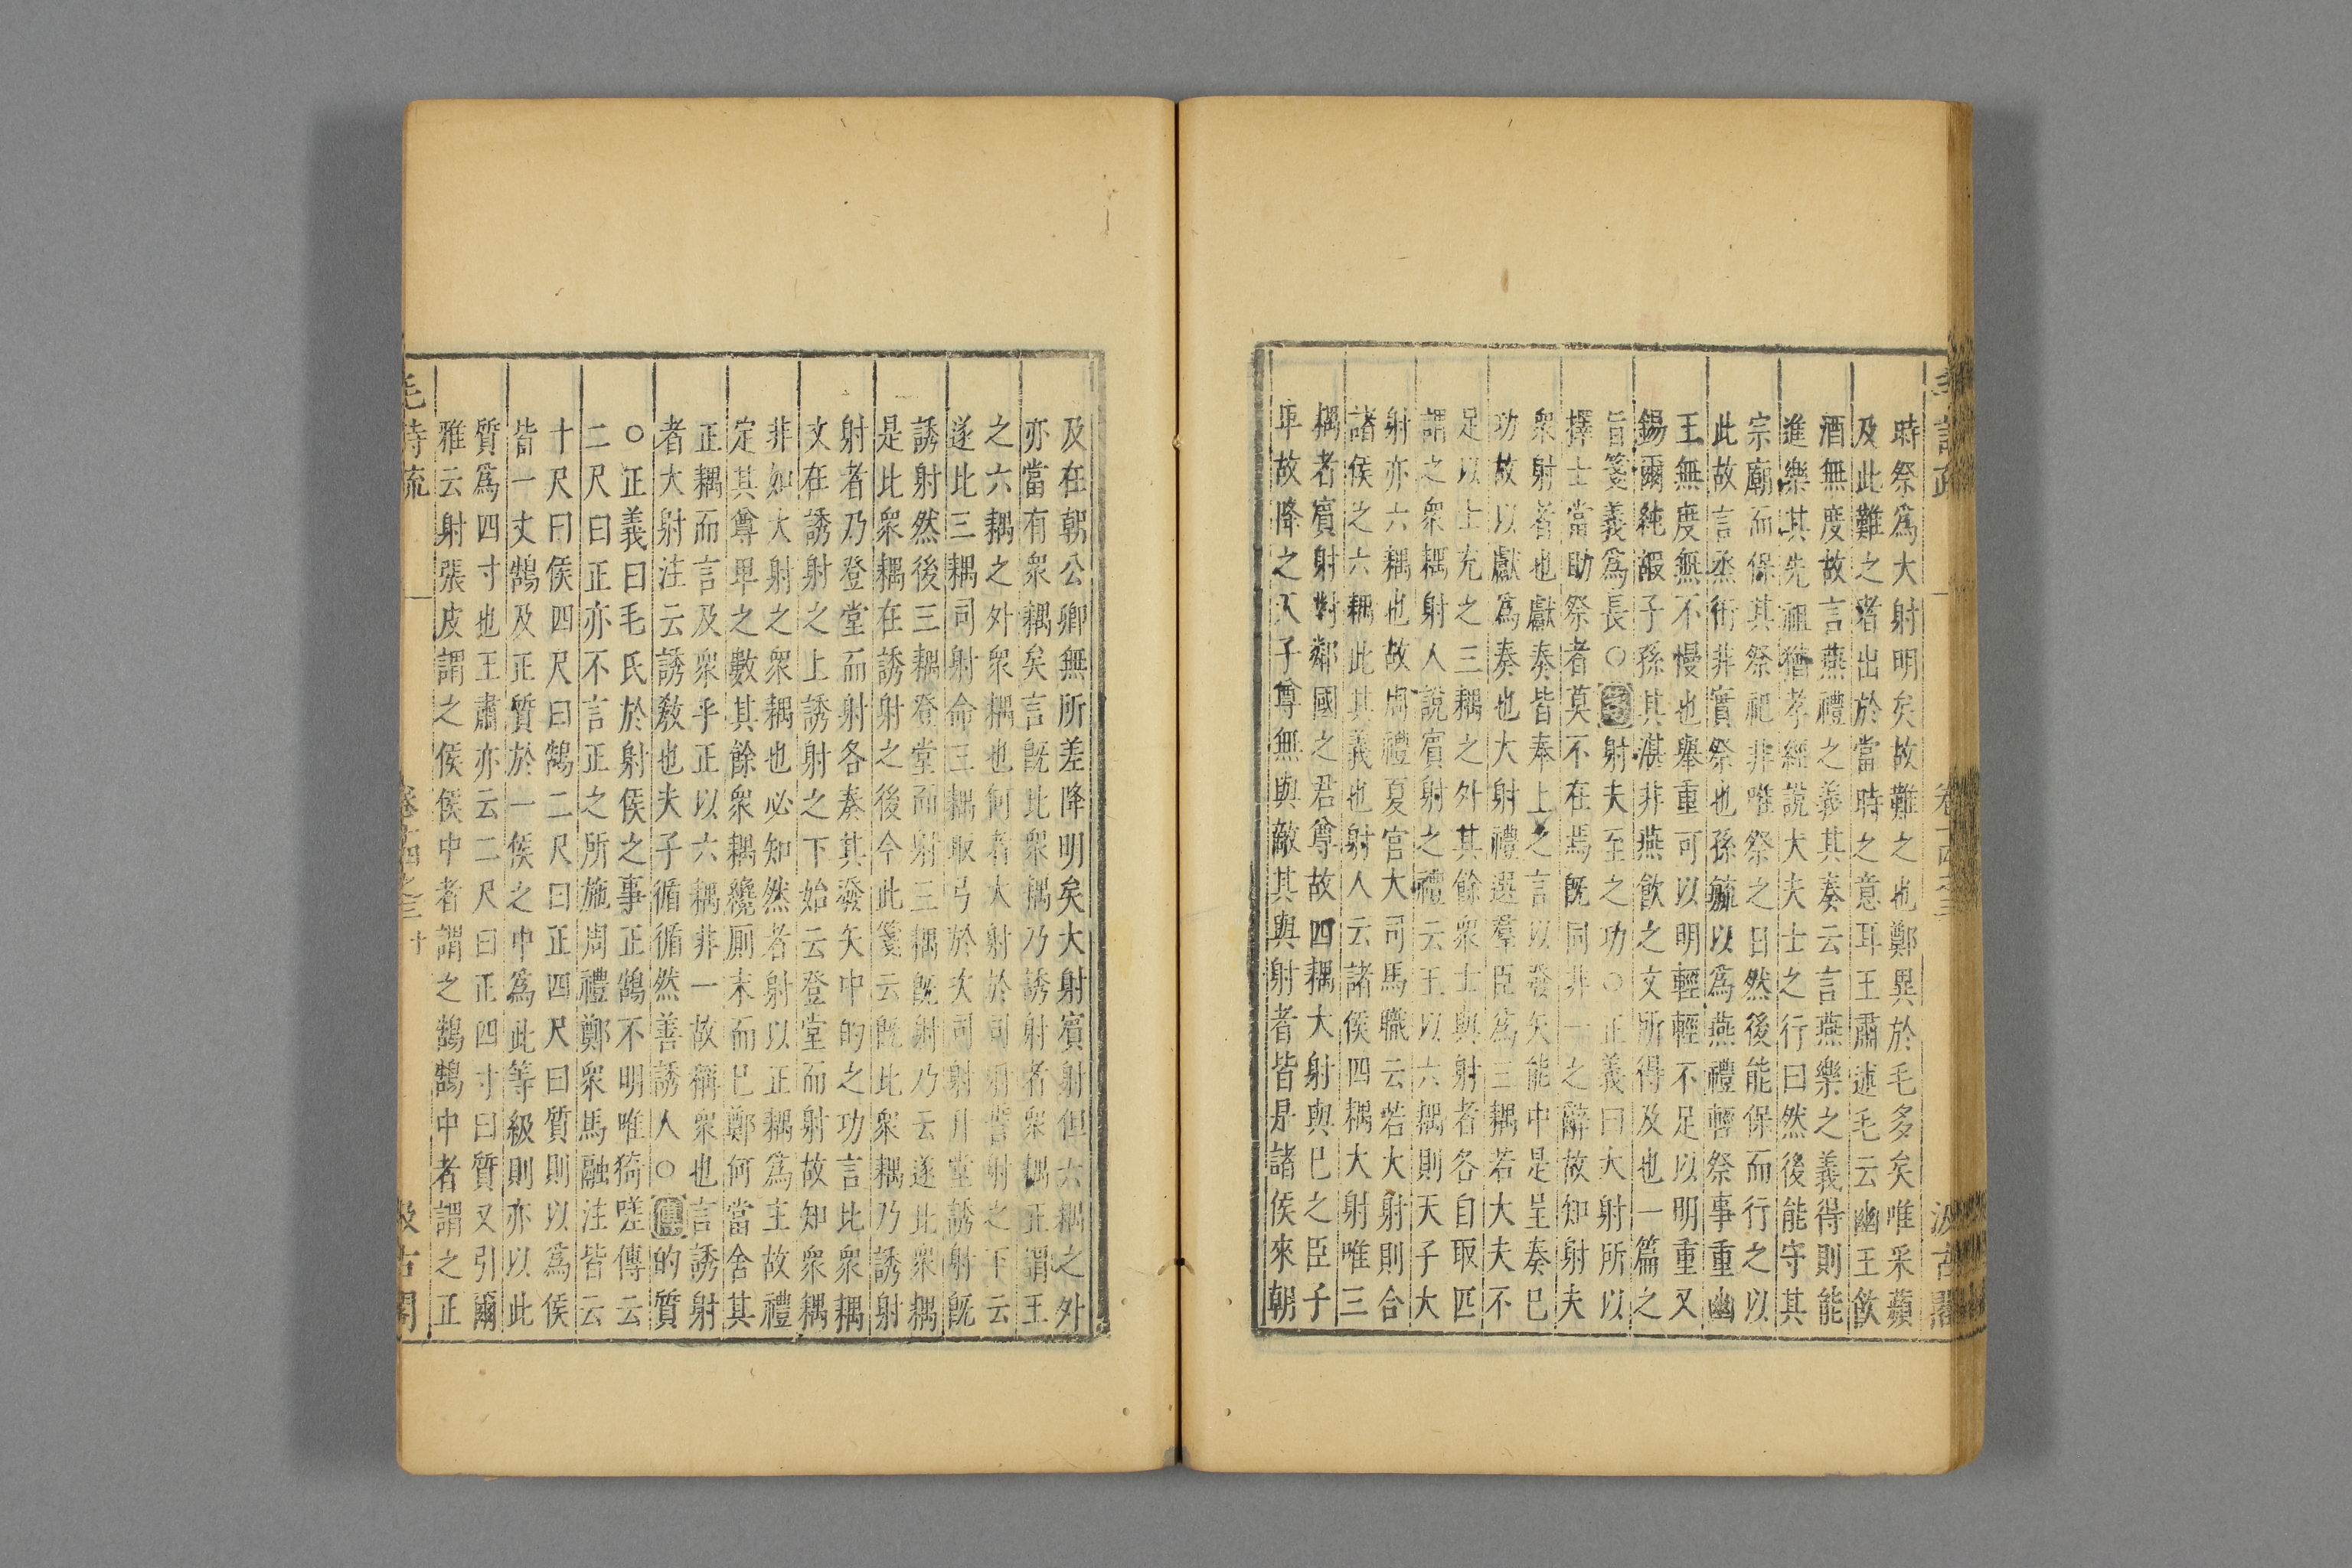 毛詩疏 卷十四之三 汲古閣
時祭爲大射明矣故難之也鄭異於毛多矣唯采蘋
及此難之者出於當時之意耳王肅述毛云幽王飲
酒無度故言燕禮之義其奏云言燕樂之義得則能
進樂其先祖猶孝經說大夫士之行曰然後能守其
宗廟而保其祭祀非唯祭之日然後能保而行之以
此故言烝衎非實祭也孫毓以爲燕禮輕祭事重幽
王無度無不慢也舉重可以明輕輕不足以明重又
錫爾純嘏子孫其湛非燕飮之文所得及也一篇之
旨箋義爲長○射夫至之功○正義曰大射所以
擇士當助祭者莫不在焉旣同非一之辭故知射夫
衆射者也獻奏皆奉上之言以發矢能中是呈奏巳
功故以獻爲奏也大射禮選羣臣爲三耦若大夫不
足以士充之三耦之外其餘衆士與射者各自取匹
謂之衆耦射人說賓射之禮云王以六耦則天子大
射亦六耦也故周禮夏官大司馬職云若大射則合
諸侯之六耦此其義也射人云諸侯四耦大射唯三
耦者賓射對鄰國之君尊故四耦大射與巳之臣子
耳故降之天子尊無與敵其與射者皆是諸侯來朝
及在朝公卿無所差降明矣大射賓射但六耦之外
亦當有衆耦矣言旣比衆耦乃誘射者衆耦正謂王
之六耦之外衆耦也何者大射於司射誓射之下云
遂比三耦司射命三耦取弓於次司射升堂誘射旣
誘射然後三耦登堂而射三耦旣射乃云遂比衆耦
是比衆耦在誘射之後今此箋云旣比衆耦乃誘射
射者乃登堂而射各奏其發矢中的之功言比衆耦
文在誘射之上誘射之下始云登堂而射故知衆耦
非如大射之衆耦也必知然者射以正耦爲主故禮
定其尊卑之數其餘衆耦纔厠末而巳鄭何當舍其
正耦而言及衆乎正以六耦非一故稱衆也言誘射
者大射注云誘敎也夫子循循然善誘人○傳的質
○正義曰毛氏於射侯之事正鵠不明唯猗嗟傳云
二尺曰正亦不言正之所施周禮鄭衆馬融注皆云
十尺曰侯四尺曰鵠二尺曰正四尺曰質則以爲侯
皆一丈鵠及正質於一侯之中爲此等級則亦以此
質爲四寸也王肅亦云二尺曰正四寸曰質又引爾
雅云射張皮謂之侯侯中者謂之鵠鵠中者謂之正
毛詩疏 卷十四之三 十 汲古閣